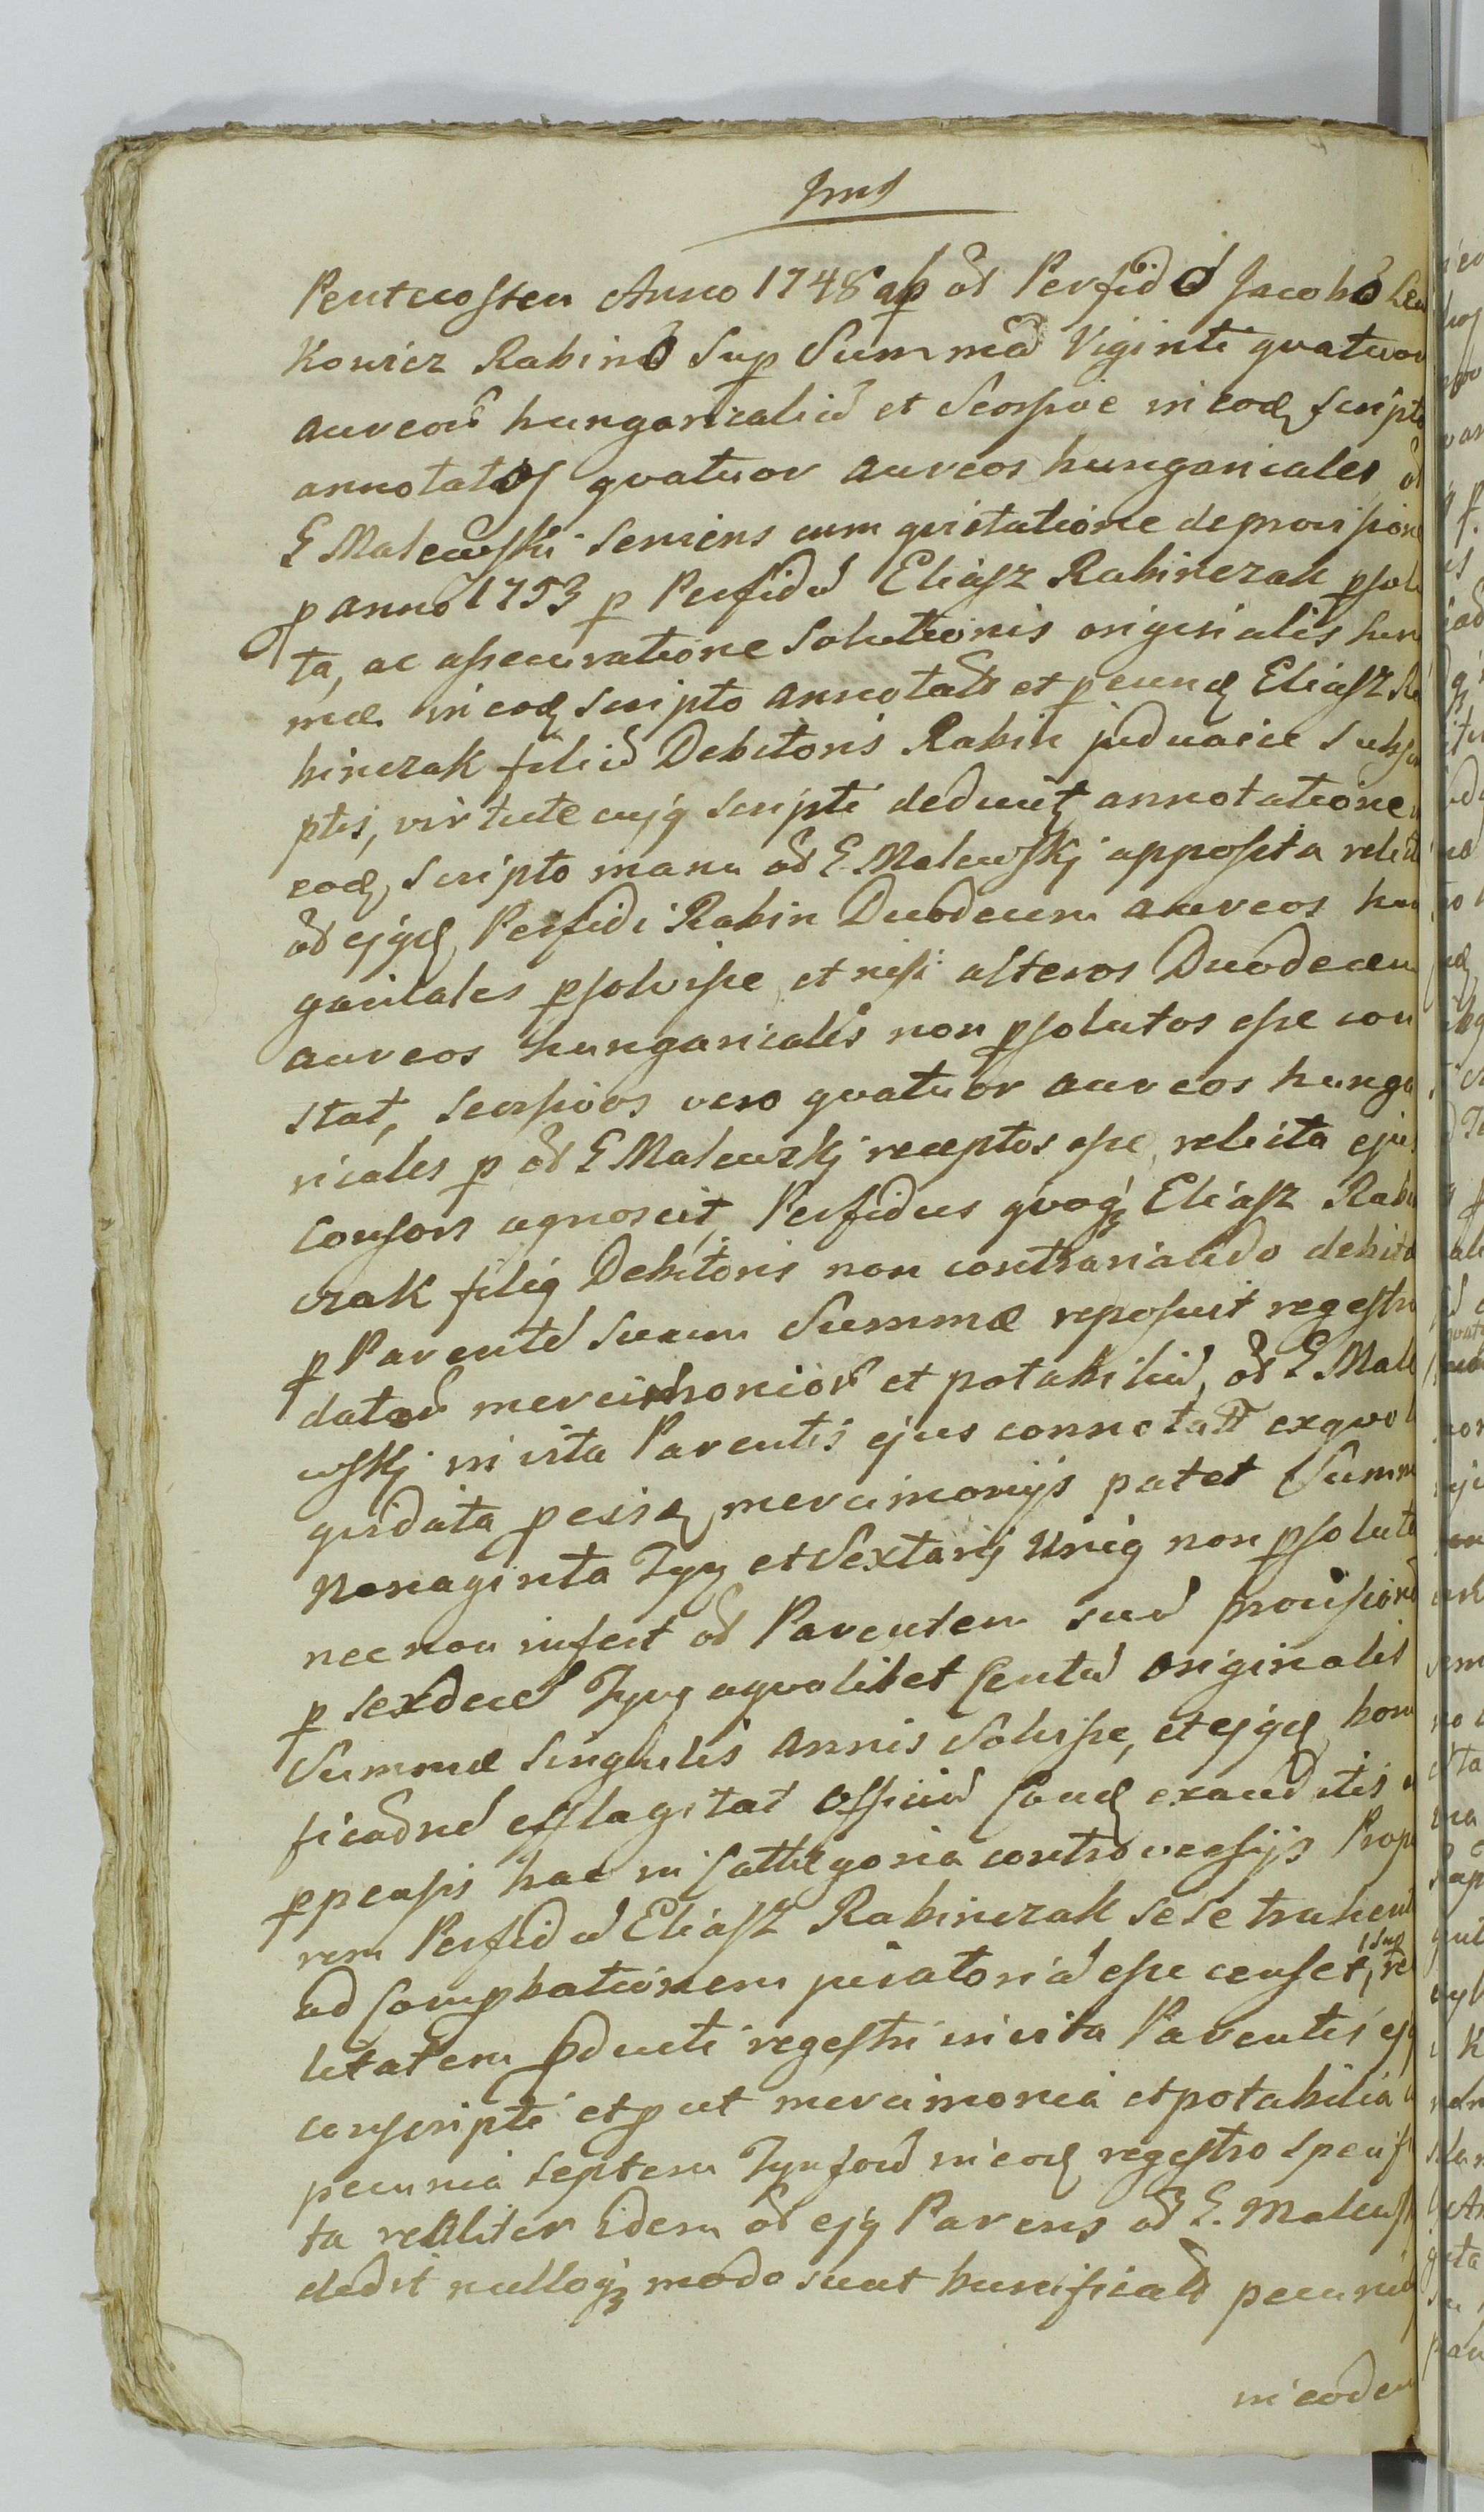 Pentecosten Anno 1748 ap ad Perfido Jacobo Lew
kowicz Rabino Sup Summa Viginti quatuor
aureoru hungaricaliu et Seorsive in eod scripto
annotatos quatuor aureos hungaricales, ad
E Malewski serviens cum quietatione de provisione
p anno 1753 p Perfidu Eliasz Rabinczak psolu
ta, ac assecuratione Solutionis originalis sum
mæ in eod scripto annotata et p eund Eliasz Ra
binczak filiu Debitoris Rabin judaice subscri
ptis, virtute cujq scripti deducit annotatione
eod scripto manu ad E. Malewskj apposita relicta
ad ejqd Perfidi Rabin Duodecim aureos hun
garicales psolvisse et nisi alteros Duodecim
aureos hungaricales non psolutos esse con
stat, seorsivos vero quatuor aureos hunga
ricales p ad E Malewskj receptos esse, relicta ejus
Consors agnoscit, Perfidus quoq Eliasz Rabin
czak filiq Debitoris non contrariando debitæ
p Parente suum Summæ reposuit regestru
datoru mercimonioru et potabiliu, ad E Male
wskj in vita Parentis ejus connotatt ex quo li
quidata p eisd mercimonijs patet Summa
Nonaginta Tyq et Sextarij Uniq non psoluta
nec non infert ad Parentem suu provisione
p sexdece Tynq a quolibet Centu Originalis
Summæ singulis annis Solvisse, et ejqd boni
ficatione efflagitat Officiu Cond exauditis
ppensis hac in Cathegoria controversijs Prope
rem Perfidu Eliasz Rabinczak sese trahent
ad Comprobationem juratoria esse censet, Sup re
litatem pducti regestri in vita Parentis ejq
conscripti et p ut mercimonia et potabilia
pecunia septem Tynforu in eod regestro specifi
ta realiter idem ad ejq Parens ad E. Malews
dedit nulloq modo sunt bonificata pecunia
in eodem